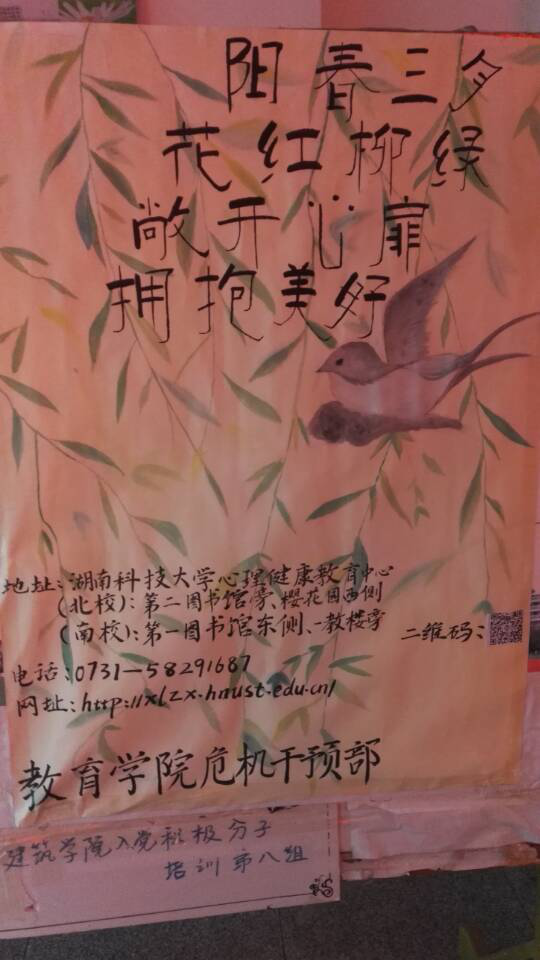 阳春三月
花红柳绿
敞开心扉
拥抱美好
地址:湖南科技大学心理健康教育中心
(北校):第二图书馆旁、樱花园西侧
(南校):第一图书馆东侧、一教楼旁
二维码:
电话:0731-58291687
网址:http://xlzx.hnust.edu.cn/
教育学院危机干预部
建筑学院入党积极分子
培训第八组